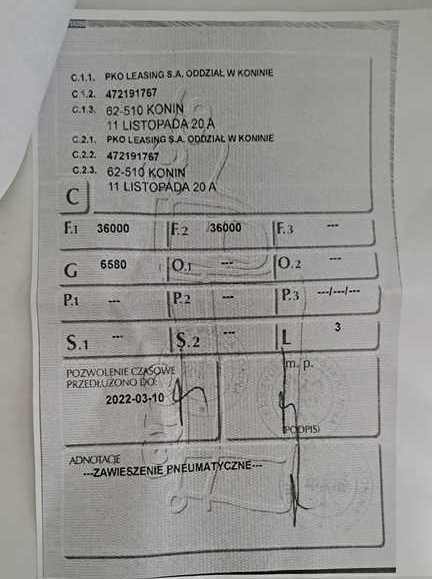 C.1.1. PKO LEASING S.A. ODDZIAŁ W KONINIE
C.1.2. 472191767
C.1.3. 62-510 KONIN
11 LISTOPADA 20 A
C.2.1. PKO LEASING S.A. ODDZIAŁ W KONINIE
C.2.2. 472191767
C.2.3. 62-510 KONIN
11 LISTOPADA 20 A
C
F.1 36000 F.2 36000 F.3 ---
G 6580 O.1 --- O.2 ---
P.1 --- P.2 --- P.3 ---/---/---
S.1 --- S.2 --- L 3
POZWOLENIE CZASOWE
PRZEDŁUŻONO DO:
2022-03-10
m. p.
(PODPIS)
ADNOTACJE
---ZAWIESZENIE PNEUMATYCZNE---